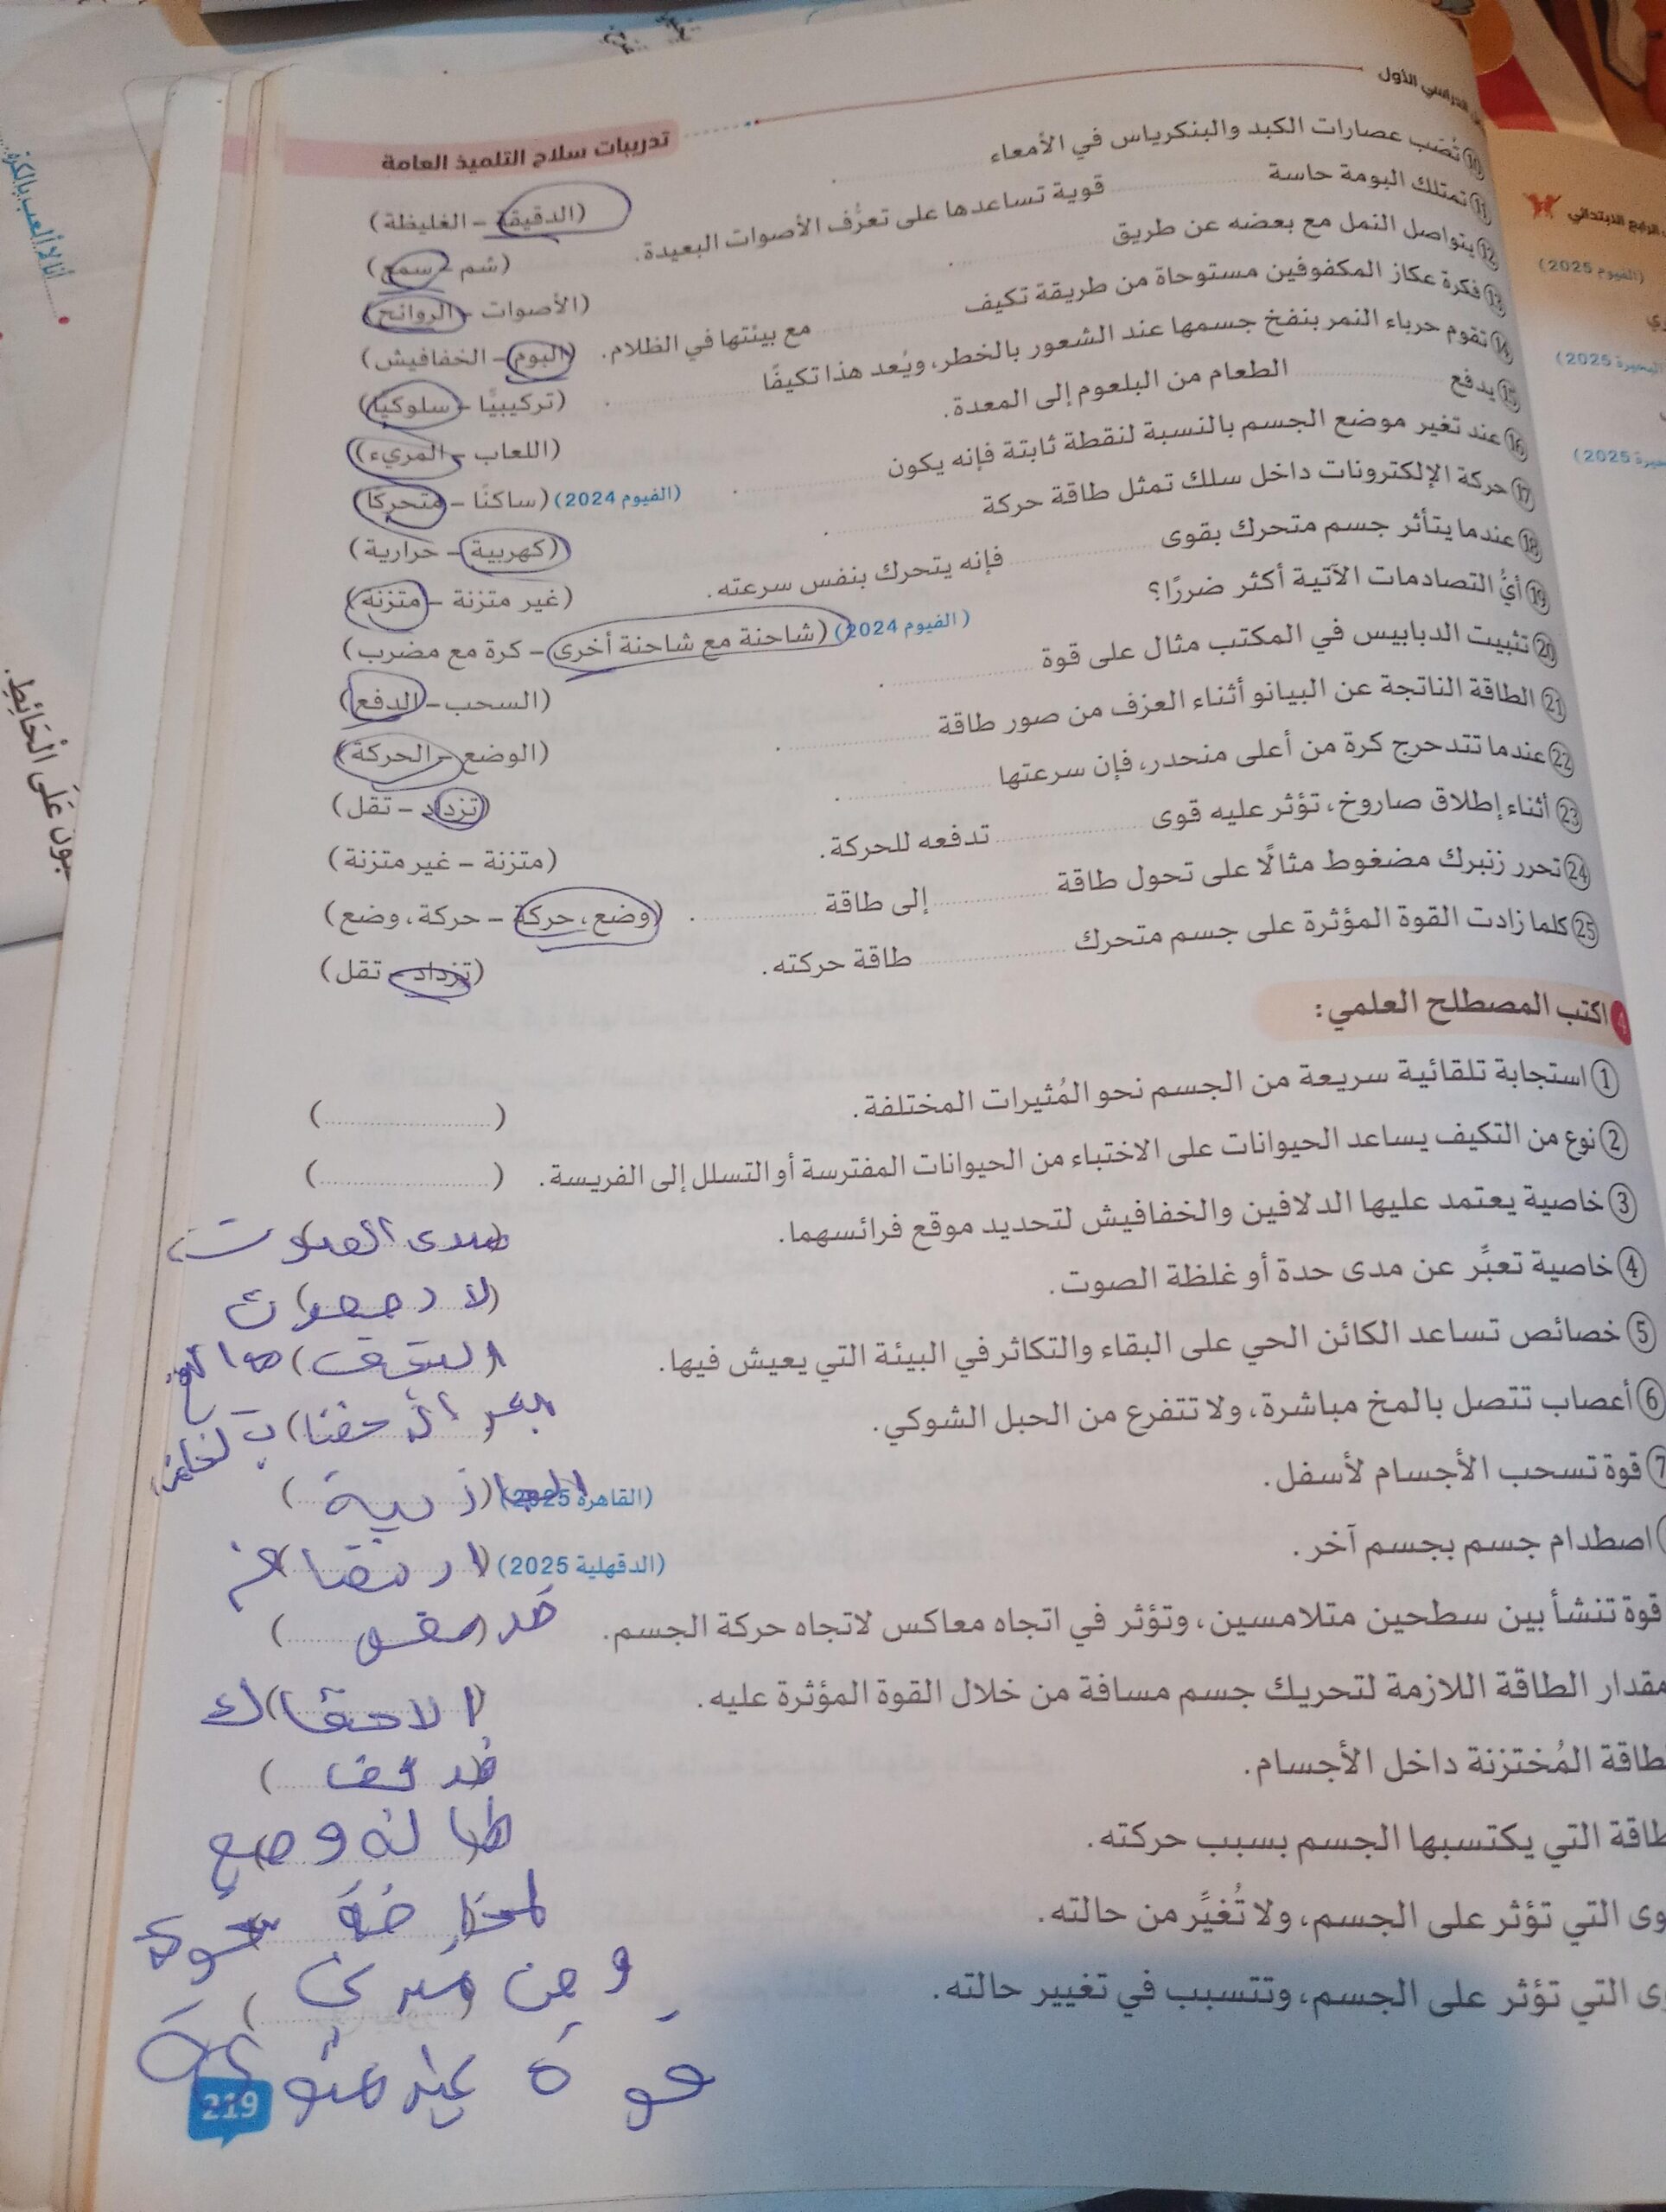 الدراسي الأول
تدريبات سلاح التلميذ العامة
10 تُصَب عصارات الكبد والبنكرياس في الأمعاء .......... .
(الدقيقة - الغليظة)
11 تمتلك البومة حاسة .......... قوية تساعدها على تعرُّف الأصوات البعيدة.
(شم - سمع)
12 يتواصل النمل مع بعضه عن طريق .......... .
(الأصوات - الروائح)
13 فكرة عكاز المكفوفين مستوحاة من طريقة تكيف .......... مع بيئتها في الظلام.
(البوم - الخفافيش)
14 تقوم حرباء النمر بنفخ جسمها عند الشعور بالخطر، ويُعد هذا تكيفًا .......... .
(تركيبيًّا - سلوكيًا)
15 يدفع .......... الطعام من البلعوم إلى المعدة.
(اللعاب - المريء)
16 عند تغير موضع الجسم بالنسبة لنقطة ثابتة فإنه يكون .......... .
(الفيوم 2024) (ساكنًا - متحركًا)
17 حركة الإلكترونات داخل سلك تمثل طاقة حركة .......... .
(كهربية - حرارية)
18 عندما يتأثر جسم متحرك بقوى .......... فإنه يتحرك بنفس سرعته.
(غير متزنة - متزنة)
19 أيُّ التصادمات الآتية أكثر ضررًا؟
(الفيوم 2024) (شاحنة مع شاحنة أخرى - كرة مع مضرب)
20 تثبيت الدبابيس في المكتب مثال على قوة .......... .
(السحب - الدفع)
21 الطاقة الناتجة عن البيانو أثناء العزف من صور طاقة .......... .
(الوضع - الحركة)
22 عندما تتدحرج كرة من أعلى منحدر، فإن سرعتها .......... .
(تزداد - تقل)
23 أثناء إطلاق صاروخ، تؤثر عليه قوى .......... تدفعه للحركة.
(متزنة - غير متزنة)
24 تحرر زنبرك مضغوط مثالًا على تحول طاقة .......... إلى طاقة .......... .
(وضع، حركة - حركة، وضع)
25 كلما زادت القوة المؤثرة على جسم متحرك .......... طاقة حركته.
(تزداد - تقل)
4 اكتب المصطلح العلمي:
1 استجابة تلقائية سريعة من الجسم نحو المُثيرات المختلفة. (..........)
2 نوع من التكيف يساعد الحيوانات على الاختباء من الحيوانات المفترسة أو التسلل إلى الفريسة. (..........)
3 خاصية يعتمد عليها الدلافين والخفافيش لتحديد موقع فرائسهما.
صدى الصوت
4 خاصية تعبِّر عن مدى حدة أو غلظة الصوت.
5 خصائص تساعد الكائن الحي على البقاء والتكاثر في البيئة التي يعيش فيها.
6 أعصاب تتصل بالمخ مباشرة، ولا تتفرع من الحبل الشوكي.
7 قوة تسحب الأجسام لأسفل. (القاهرة 2025)
الجاذبية
اصطدام جسم بجسم آخر. (الدقهلية 2025)
قوة تنشأ بين سطحين متلامسين، وتؤثر في اتجاه معاكس لاتجاه حركة الجسم.
مقدار الطاقة اللازمة لتحريك جسم مسافة من خلال القوة المؤثرة عليه.
الطاقة المُختزنة داخل الأجسام.
طاقة التي يكتسبها الجسم بسبب حركته.
وى التي تؤثر على الجسم، ولا تُغيِّر من حالته.
وى التي تؤثر على الجسم، وتتسبب في تغيير حالته.
219
الرابع الابتدائي
(الفيوم 2025)
البحيرة 2025)
حيرة 2025)
أنا لا ألعب بالكرة
بُونَ عَلَى الْحَائِطِ.